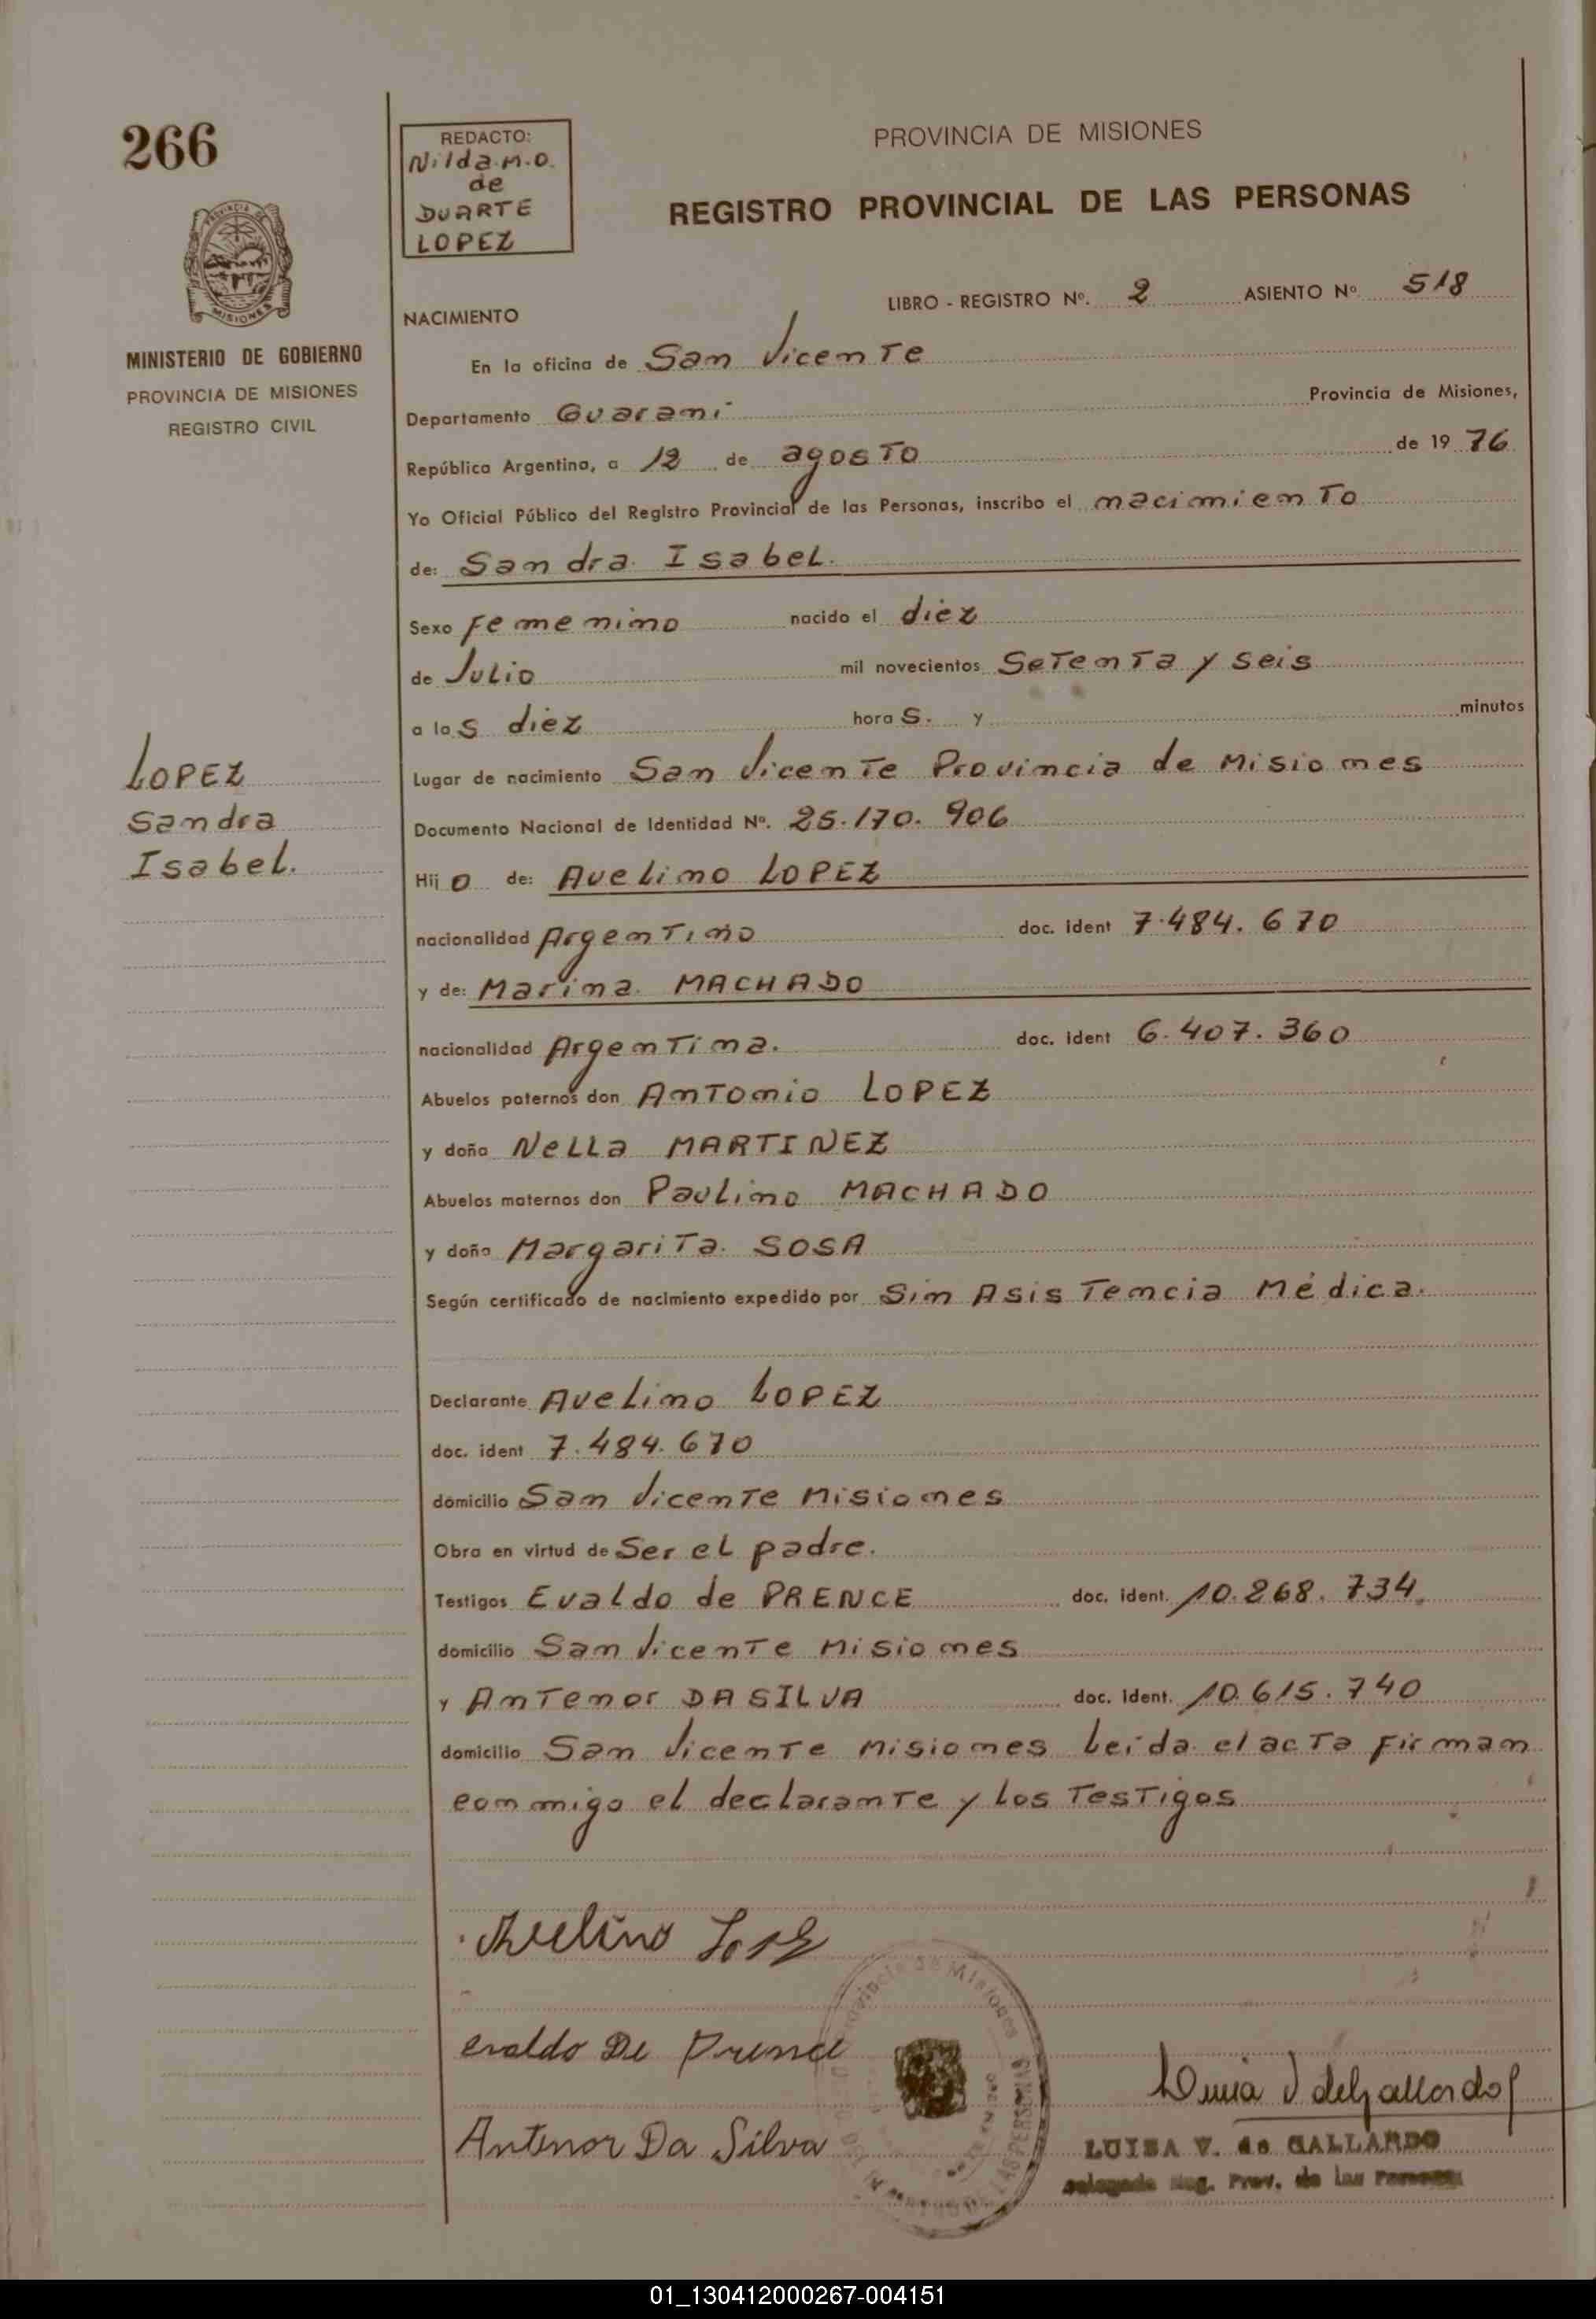 266
REDACTO:
Nilda.M.O.
de
DUARTE
LOPEZ
PROVINCIA DE MISIONES
REGISTRO PROVINCIAL DE LAS PERSONAS
MISIONES
MINISTERIO DE GOBIERNO
PROVINCIA DE MISIONES
REGISTRO CIVIL
LIBRO - REGISTRO Nº. 2 ASIENTO Nº 518
NACIMIENTO
En la oficina de San Vicente
Departamento Guarani
Provincia de Misiones,
República Argentina, a 12 de agosto de 1976
Yo Oficial Público del Registro Provincial de las Personas, inscribo el nacimiento
de: Sandra Isabel.
Sexo femenino nacido el diez
de Julio mil novecientos Setenta y seis
a las diez horas. y minutos
LOPEZ
Sandra
Isabel.
Lugar de nacimiento San Vicente Provincia de Misiones
Documento Nacional de Identidad Nº. 25.170.906
Hijo de: Avelino LOPEZ
nacionalidad Argentino doc. ident 7.484.670
y de: Marina MACHADO
nacionalidad Argentina. doc. ident 6.407.360
Abuelos paternos don Antonio LOPEZ
y doña Nella MARTINEZ
Abuelos maternos don Paulino MACHADO
y doña Margarita SOSA
Según certificado de nacimiento expedido por Sin Asistencia Médica.
Declarante Avelino LOPEZ
doc. ident 7.484.670
domicilio San Vicente Misiones
Obra en virtud de Ser el padre.
Testigos Evaldo de PRENCE doc. ident. 10.268.734.
domicilio San Vicente Misiones
y Antenor DA SILVA doc. ident. 10.615.740
domicilio San Vicente Misiones Leída el acta firman
conmigo el declarante y los Testigos
Avelino Lopez
evaldo De Prence
Antenor Da Silva
Provincia de Misiones
LUISA V. de GALLARDO
Reg. Prov. de las Personas
01_130412000267-004151